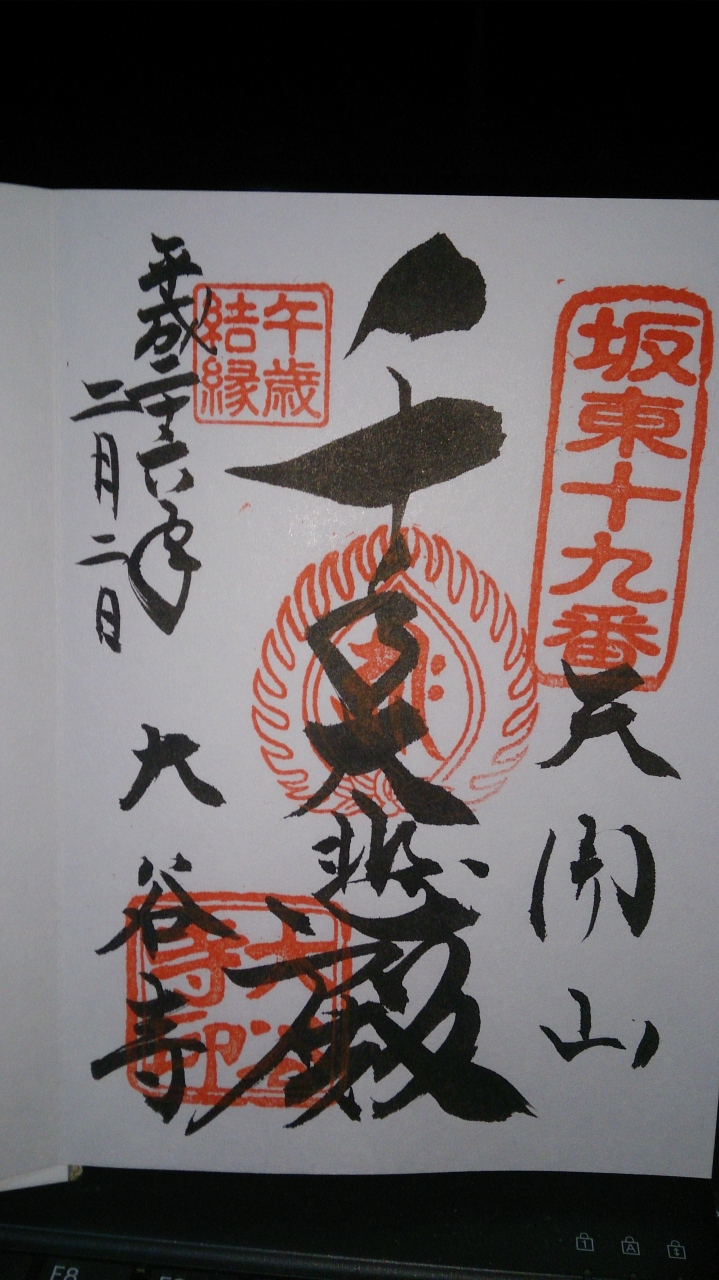 坂東十九番
天開山
千手大悲殿
午歳
結縁
平成二十六年
二月二日
大谷寺
大谷
寺印
F8
1
A